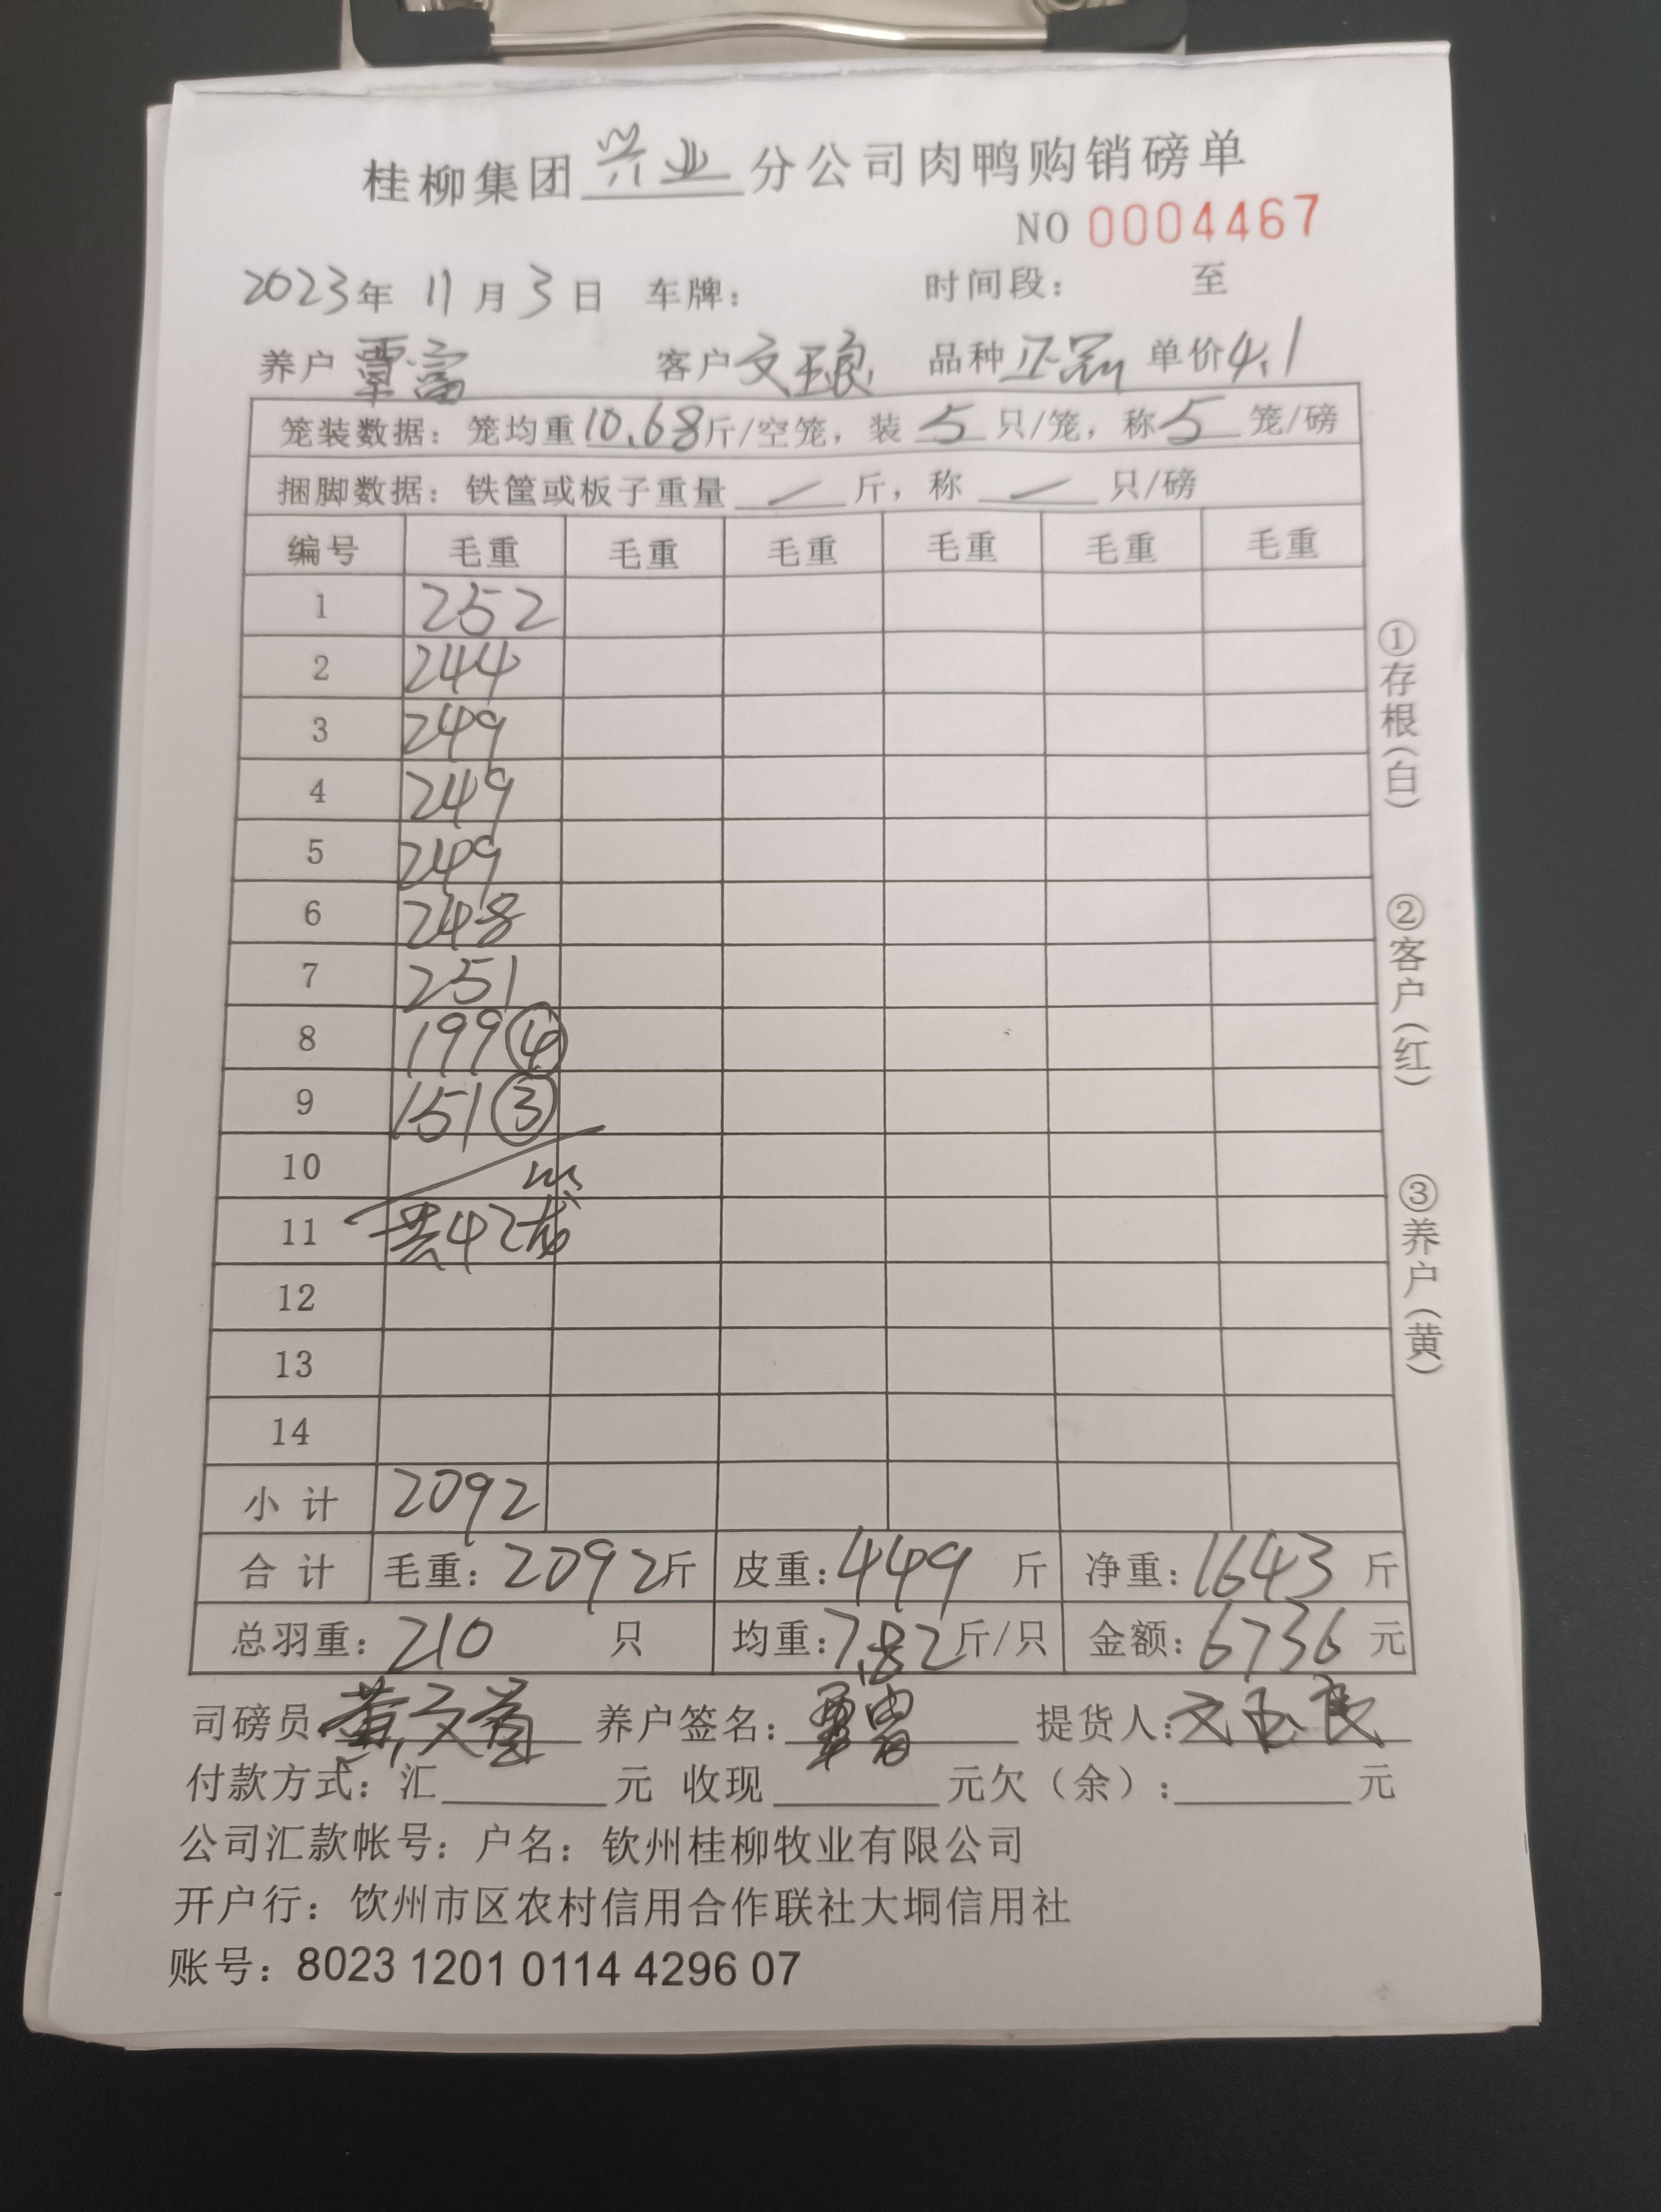 桂柳集团 兴业 分公司肉鸭购销磅单
NO 0004467
2023年 11月3日 车牌: 时间段: 至
养户 覃富 客户 文玉良 品种 正品 单价 4.1
笼装数据: 笼均重10.68斤/空笼, 装 5 只/笼, 称 5 笼/磅
捆脚数据: 铁筐或板子重量 / 斤, 称 / 只/磅
编号 毛重 毛重 毛重 毛重 毛重 毛重
1 252
2 244
3 249
4 249
5 249
6 248
7 251
8 199 ④
9 151 ③
10
11 共42笼
12
13
14
小计 2092
合计 毛重: 2092斤 皮重: 449 斤 净重: 1643 斤
总羽重: 210 只 均重: 7.82斤/只 金额: 6736 元
司磅员 黄文 养户签名: 覃富 提货人: 文玉良
付款方式: 汇 元 收现 元欠(余): 元
公司汇款帐号: 户名: 钦州桂柳牧业有限公司
开户行: 钦州市区农村信用合作联社大垌信用社
账号: 8023 1201 0114 4296 07
①存根(白)
②客户(红)
③养户(黄)